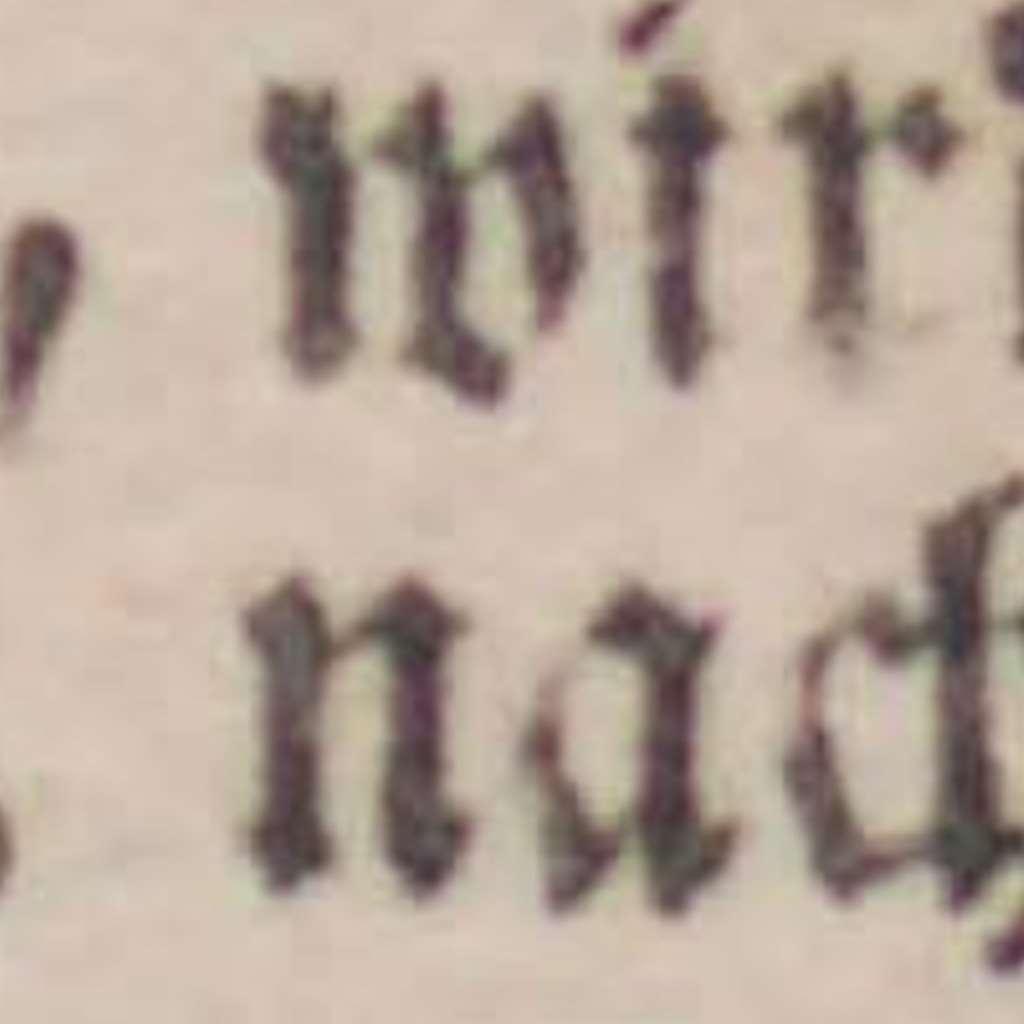 , wir
nach